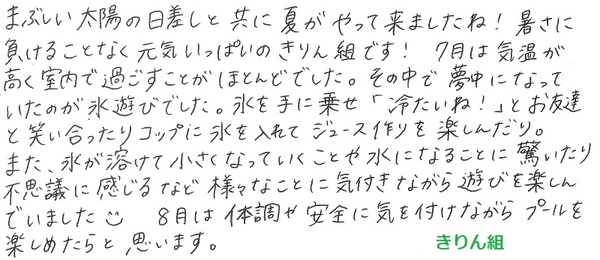 まぶしい太陽の日差しと共に夏がやって来ましたね！暑さに
負けることなく元気いっぱいのきりん組です！ 7月は気温が
高く室内で過ごすことがほとんどでした。その中で夢中になって
いたのが氷遊びでした。氷を手に乗せ「冷たいね！」とお友達
と笑い合ったりコップに氷を入れてジュース作りを楽しんだり。
また、氷が溶けて小さくなっていくことや水になることに驚いたり
不思議に感じるなど様々なことに気付きながら遊びを楽しん
でいました☺ 8月は体調や安全に気を付けながらプールを
楽しめたらと思います。
きりん組